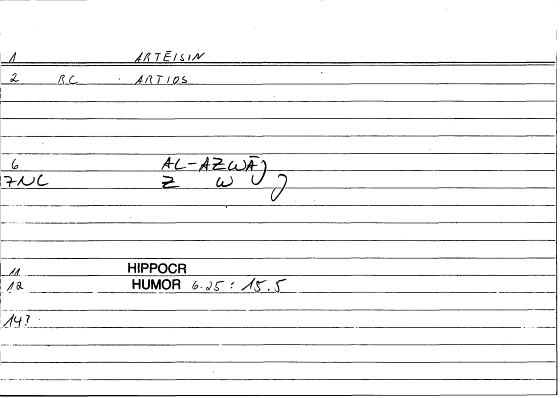 1 ARTĒISIN
2 RC ARTIOS
6 AL-AZWĀJ
7NC Z W J
11 HIPPOCR
12 HUMOR 6.25: 15.5
14?